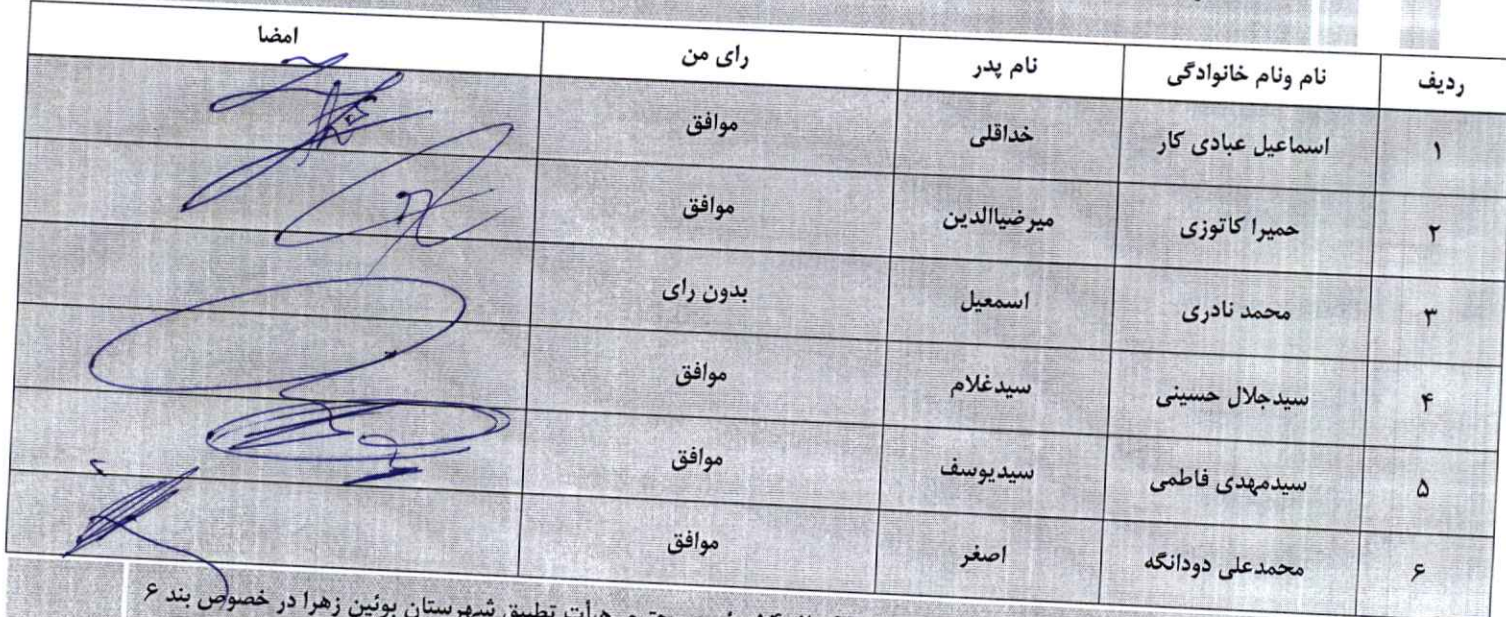 ردیف نام ونام خانوادگی نام پدر رای من امضا
۱ اسماعیل عبادی کار خداقلی موافق
۲ حمیرا کاتوزی میرضیاالدین موافق
۳ محمد نادری اسمعیل بدون رای
۴ سیدجلال حسینی سیدغلام موافق
۵ سیدمهدی فاطمی سیدیوسف موافق
۶ محمدعلی دودانگه اصغر موافق
هیأت تطبیق شهرستان بوئین زهرا در خصوص بند ۶